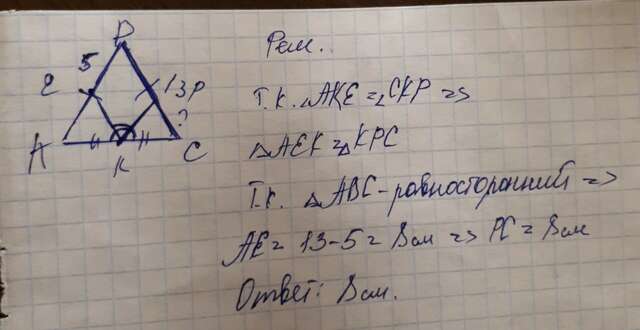 B
5
E
13 P
?
A
K
C
Реш.
Т.к. ∠AKE = ∠CKP =>
△AEK = △KPC
Т.к. △ABC - равносторонний =>
AE = 13-5 = 8 см => PC = 8 см
Ответ: 8 см.